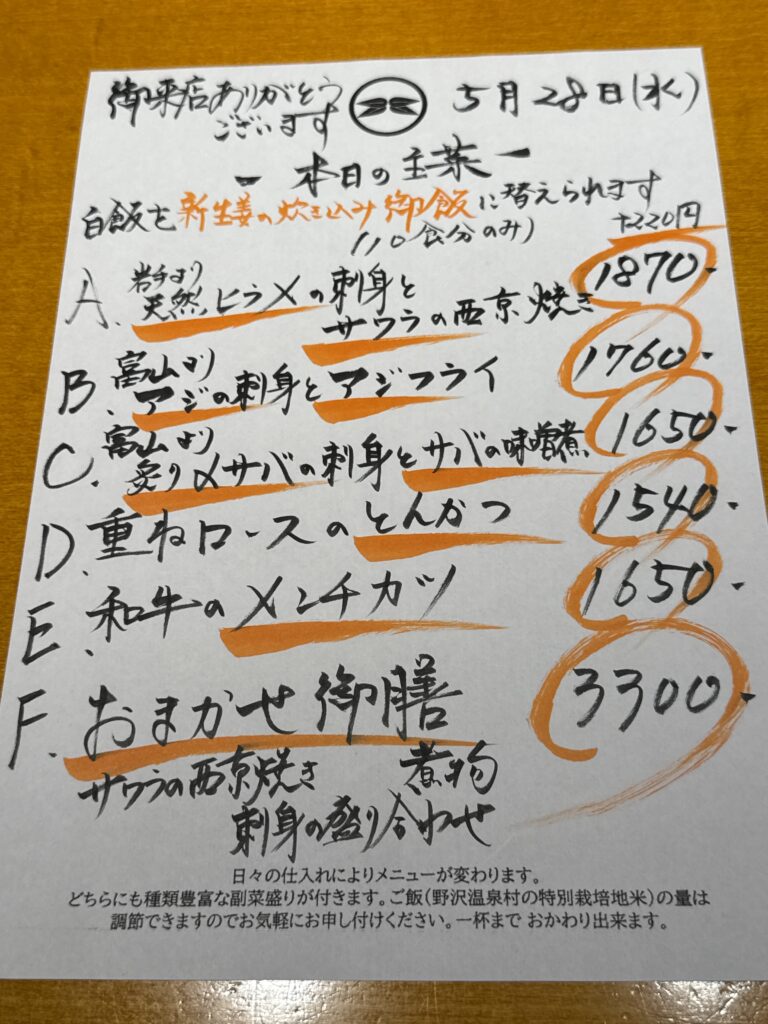 御来店ありがとう
ございます
5月28日(水)
- 本日の主菜 -
白飯を新生姜の炊き込み御飯に替えられます
(10食分のみ) +220円
A. 岩手より
天然ヒラメの刺身と
サワラの西京焼き 1870-
B. 富山より
アジの刺身とアジフライ 1760-
C. 富山より
炙り〆サバの刺身とサバの味噌煮 1650-
D. 重ねロースのとんかつ 1540-
E. 和牛のメンチカツ 1650-
F. おまかせ御膳 3300-
サワラの西京焼き 煮物
刺身の盛り合わせ
日々の仕入れによりメニューが変わります。
どちらにも種類豊富な副菜盛りが付きます。ご飯(野沢温泉村の特別栽培地米)の量は
調節できますのでお気軽にお申し付けください。一杯まで おかわり出来ます。